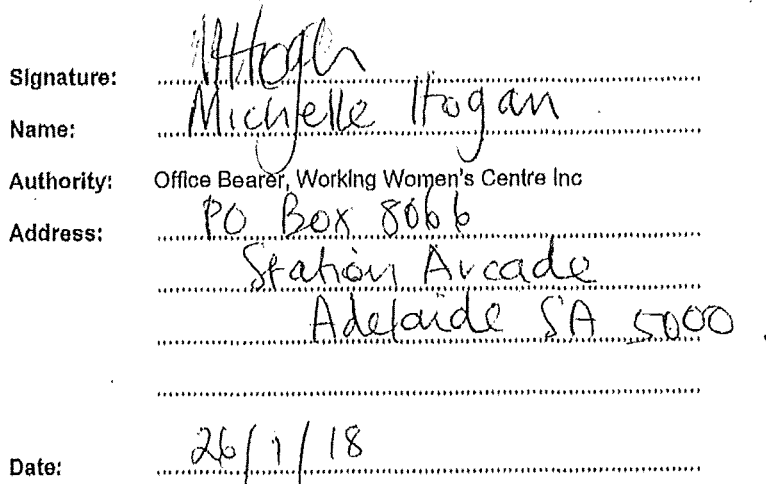 Signature: MHogan
Name: Michelle Hogan
Authority: Office Bearer, Working Women's Centre Inc
Address: PO Box 8066
Station Arcade
Adelaide SA 5000
Date: 26/1/18